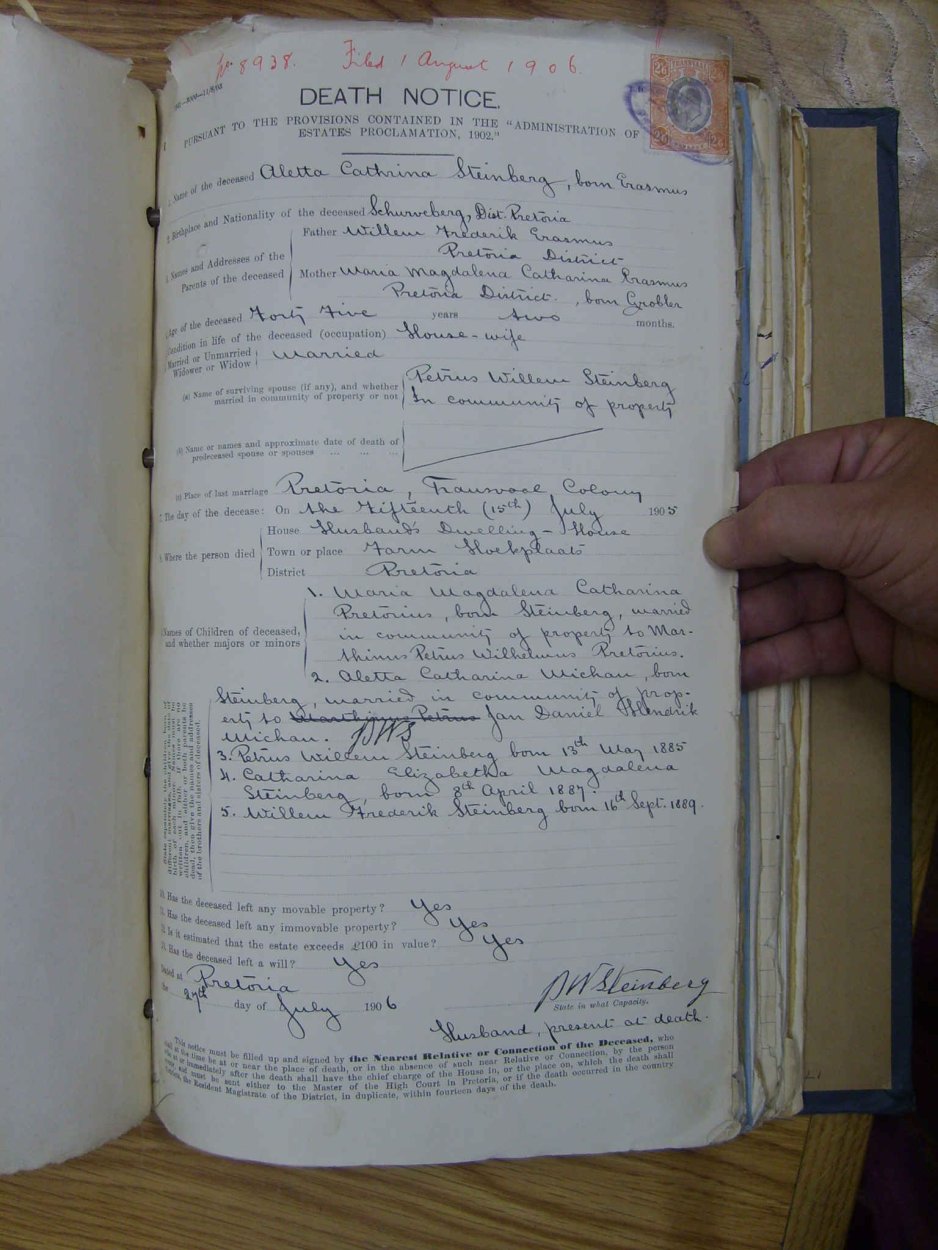 No 8938. Filed 1 August 1906.
DEATH NOTICE.
PURSUANT TO THE PROVISIONS CONTAINED IN THE "ADMINISTRATION OF
ESTATES PROCLAMATION, 1902."
TRANSVAAL
2/6 2/6
1. Name of the deceased Aletta Cathrina Steinberg, born Erasmus
2. Birthplace and Nationality of the deceased Schurveberg, Dist. Pretoria
3. Names and Addresses of the Parents of the deceased
Father Willem Frederik Erasmus
Pretoria District
Mother Maria Magdalena Catharina Erasmus
Pretoria District, born Grobler
Age of the deceased Forty Five years two months.
Condition in life of the deceased (occupation) House-wife
Married or Unmarried Widower or Widow Married
(a) Name of surviving spouse (if any), and whether married in community of property or not
Petrus Willem Steinberg
In community of property
(b) Name or names and approximate date of death of
predeceased spouse or spouses ... ... ...
(c) Place of last marriage Pretoria, Transvaal Colony
7. The day of the decease: On the Fifteenth (15th) July 1905
8. Where the person died
House Husband's Dwelling-House
Town or place Farm Hoekplaats
District Pretoria
Names of Children of deceased, and whether majors or minors
1. Maria Magdalena Catharina
Pretorius, born Steinberg, married
in community of property to Mar-
thinus Petrus Wilhelmus Pretorius.
2. Aletta Catharina Michau, born
Steinberg, married in community of prop-
erty to Marthinus Petrus Jan Daniel Hendrik
Michau. PWS
3. Petrus Willem Steinberg born 13th May 1885
4. Catharina Elizabetha Magdalena
Steinberg, born 8th April 1887.
5. Willem Frederik Steinberg born 16th Sept. 1889.
State separately the children born of
different marriages, and give the date of
birth of each minor. Names must be
written out in full. If there are no
children, and either or both parents be
dead, then give the names and addresses
of the brothers and sisters of deceased.
10. Has the deceased left any movable property? Yes
11. Has the deceased left any immovable property? Yes
12. Is it estimated that the estate exceeds £100 in value? Yes
13. Has the deceased left a will? Yes
Dated at Pretoria
the 27th day of July 1906
PW Steinberg
State in what Capacity.
Husband, present at death.
This notice must be filled up and signed by the Nearest Relative or Connection of the Deceased, who
shall at the time be at or near the place of death, or in the absence of such near Relative or Connection, by the person
who at or immediately after the death shall have the chief charge of the House in, or the place on, which the death shall
occur, and must be sent either to the Master of the High Court in Pretoria, or if the death occurred in the country
Districts, the Resident Magistrate of the District, in duplicate, within fourteen days of the death.